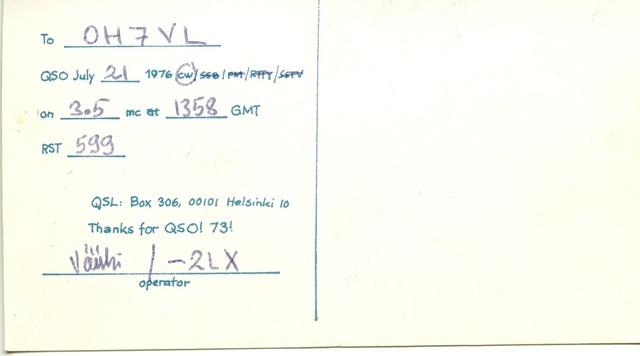 To OH7VL
QSO July 21 1976 CW/SSB/FM/RTTY/SSTV
on 3.5 mc at 1358 GMT
RST 599
QSL: Box 306, 00101 Helsinki 10
Thanks for QSO! 73!
/ -2LX
operator